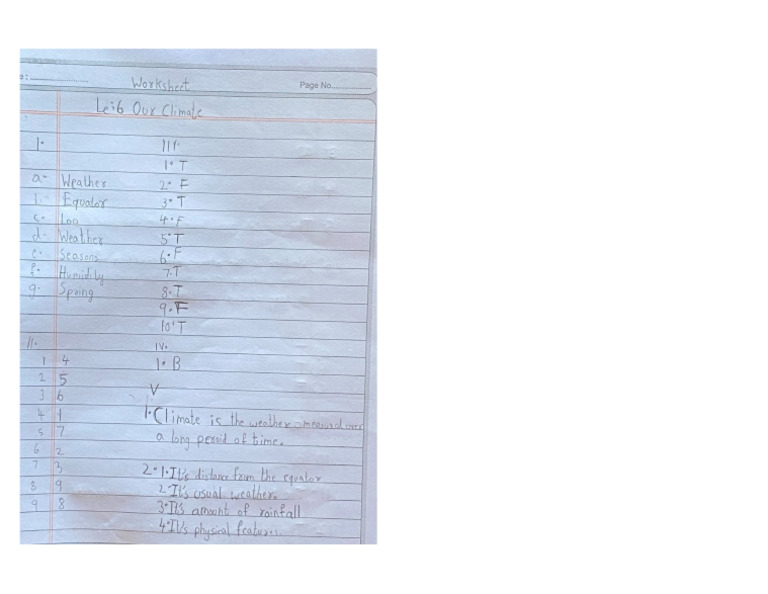 Worksheet
Page No.
Le:6 Our Climate
I.
a. Weather
b. Equator
c. Loo
d. Weather
e. Seasons
f. Humidity
g. Spring
II.
1 4
2 5
3 6
4 1
5 7
6 2
7 3
8 9
9 8
III.
1. T
2. F
3. T
4. F
5. T
6. F
7. T
8. T
9. F
10. T
IV.
1. B
V
1. Climate is the weather measured over
a long period of time.
2. 1. It's distance from the equator
2. It's usual weather.
3. It's amount of rainfall
4. It's physical features.